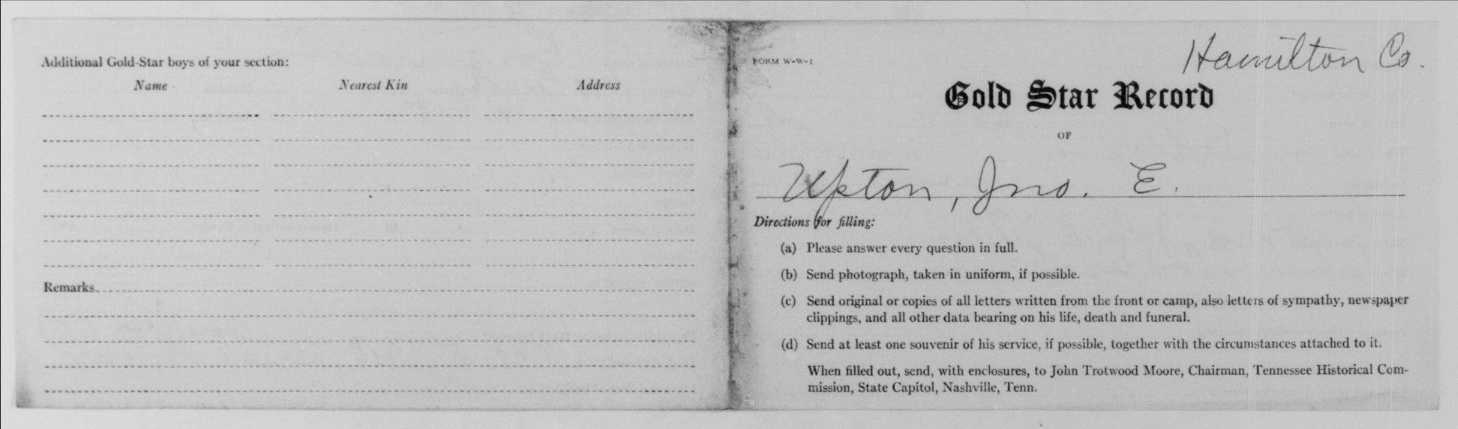 Additional Gold-Star boys of your section:
Name Nearest Kin Address
Remarks
FORM W-W-1
Hamilton Co.
Gold Star Record
OF
Upton, Jno. E.
Directions for filling:
(a) Please answer every question in full.
(b) Send photograph, taken in uniform, if possible.
(c) Send original or copies of all letters written from the front or camp, also letters of sympathy, newspaper
clippings, and all other data bearing on his life, death and funeral.
(d) Send at least one souvenir of his service, if possible, together with the circumstances attached to it.
When filled out, send, with enclosures, to John Trotwood Moore, Chairman, Tennessee Historical Com-
mission, State Capitol, Nashville, Tenn.